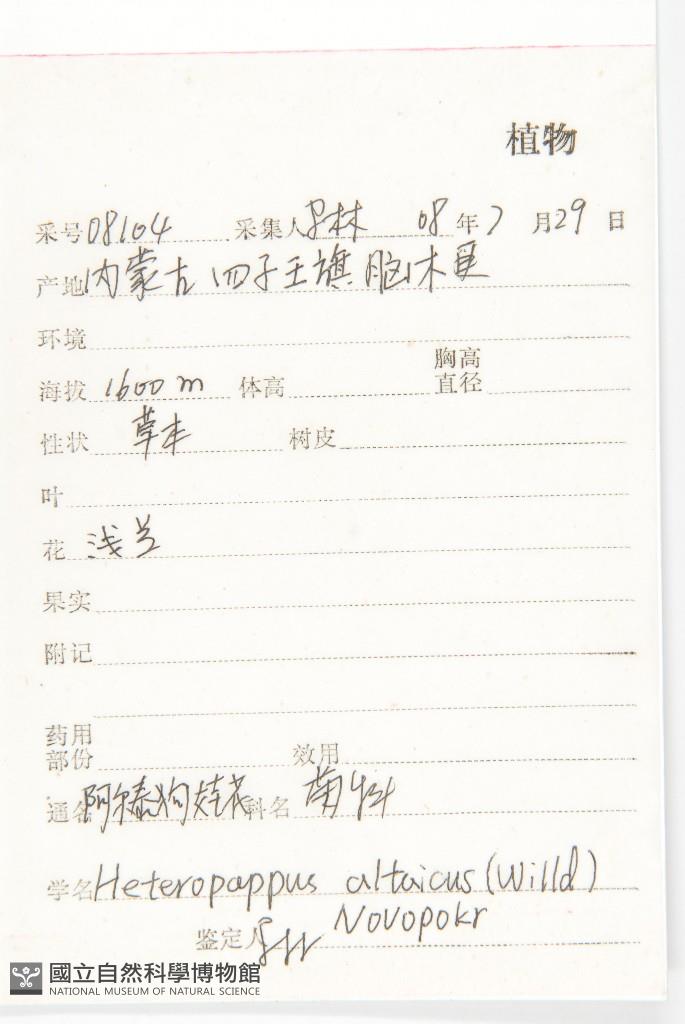 植物
采号 08104 采集人 林 08 年 7 月 29 日
产地 内蒙古 四子王旗 脑木更
环境
海拔 1600 m 体高 胸高直径
性状 草本 树皮
叶
花 浅兰
果实
附记
药用部份 效用
通名 阿尔泰狗娃花 科名 菊科
学名 Heteropappus altaicus (Willd)
Novopokr
鉴定人
國立自然科學博物館
NATIONAL MUSEUM OF NATURAL SCIENCE